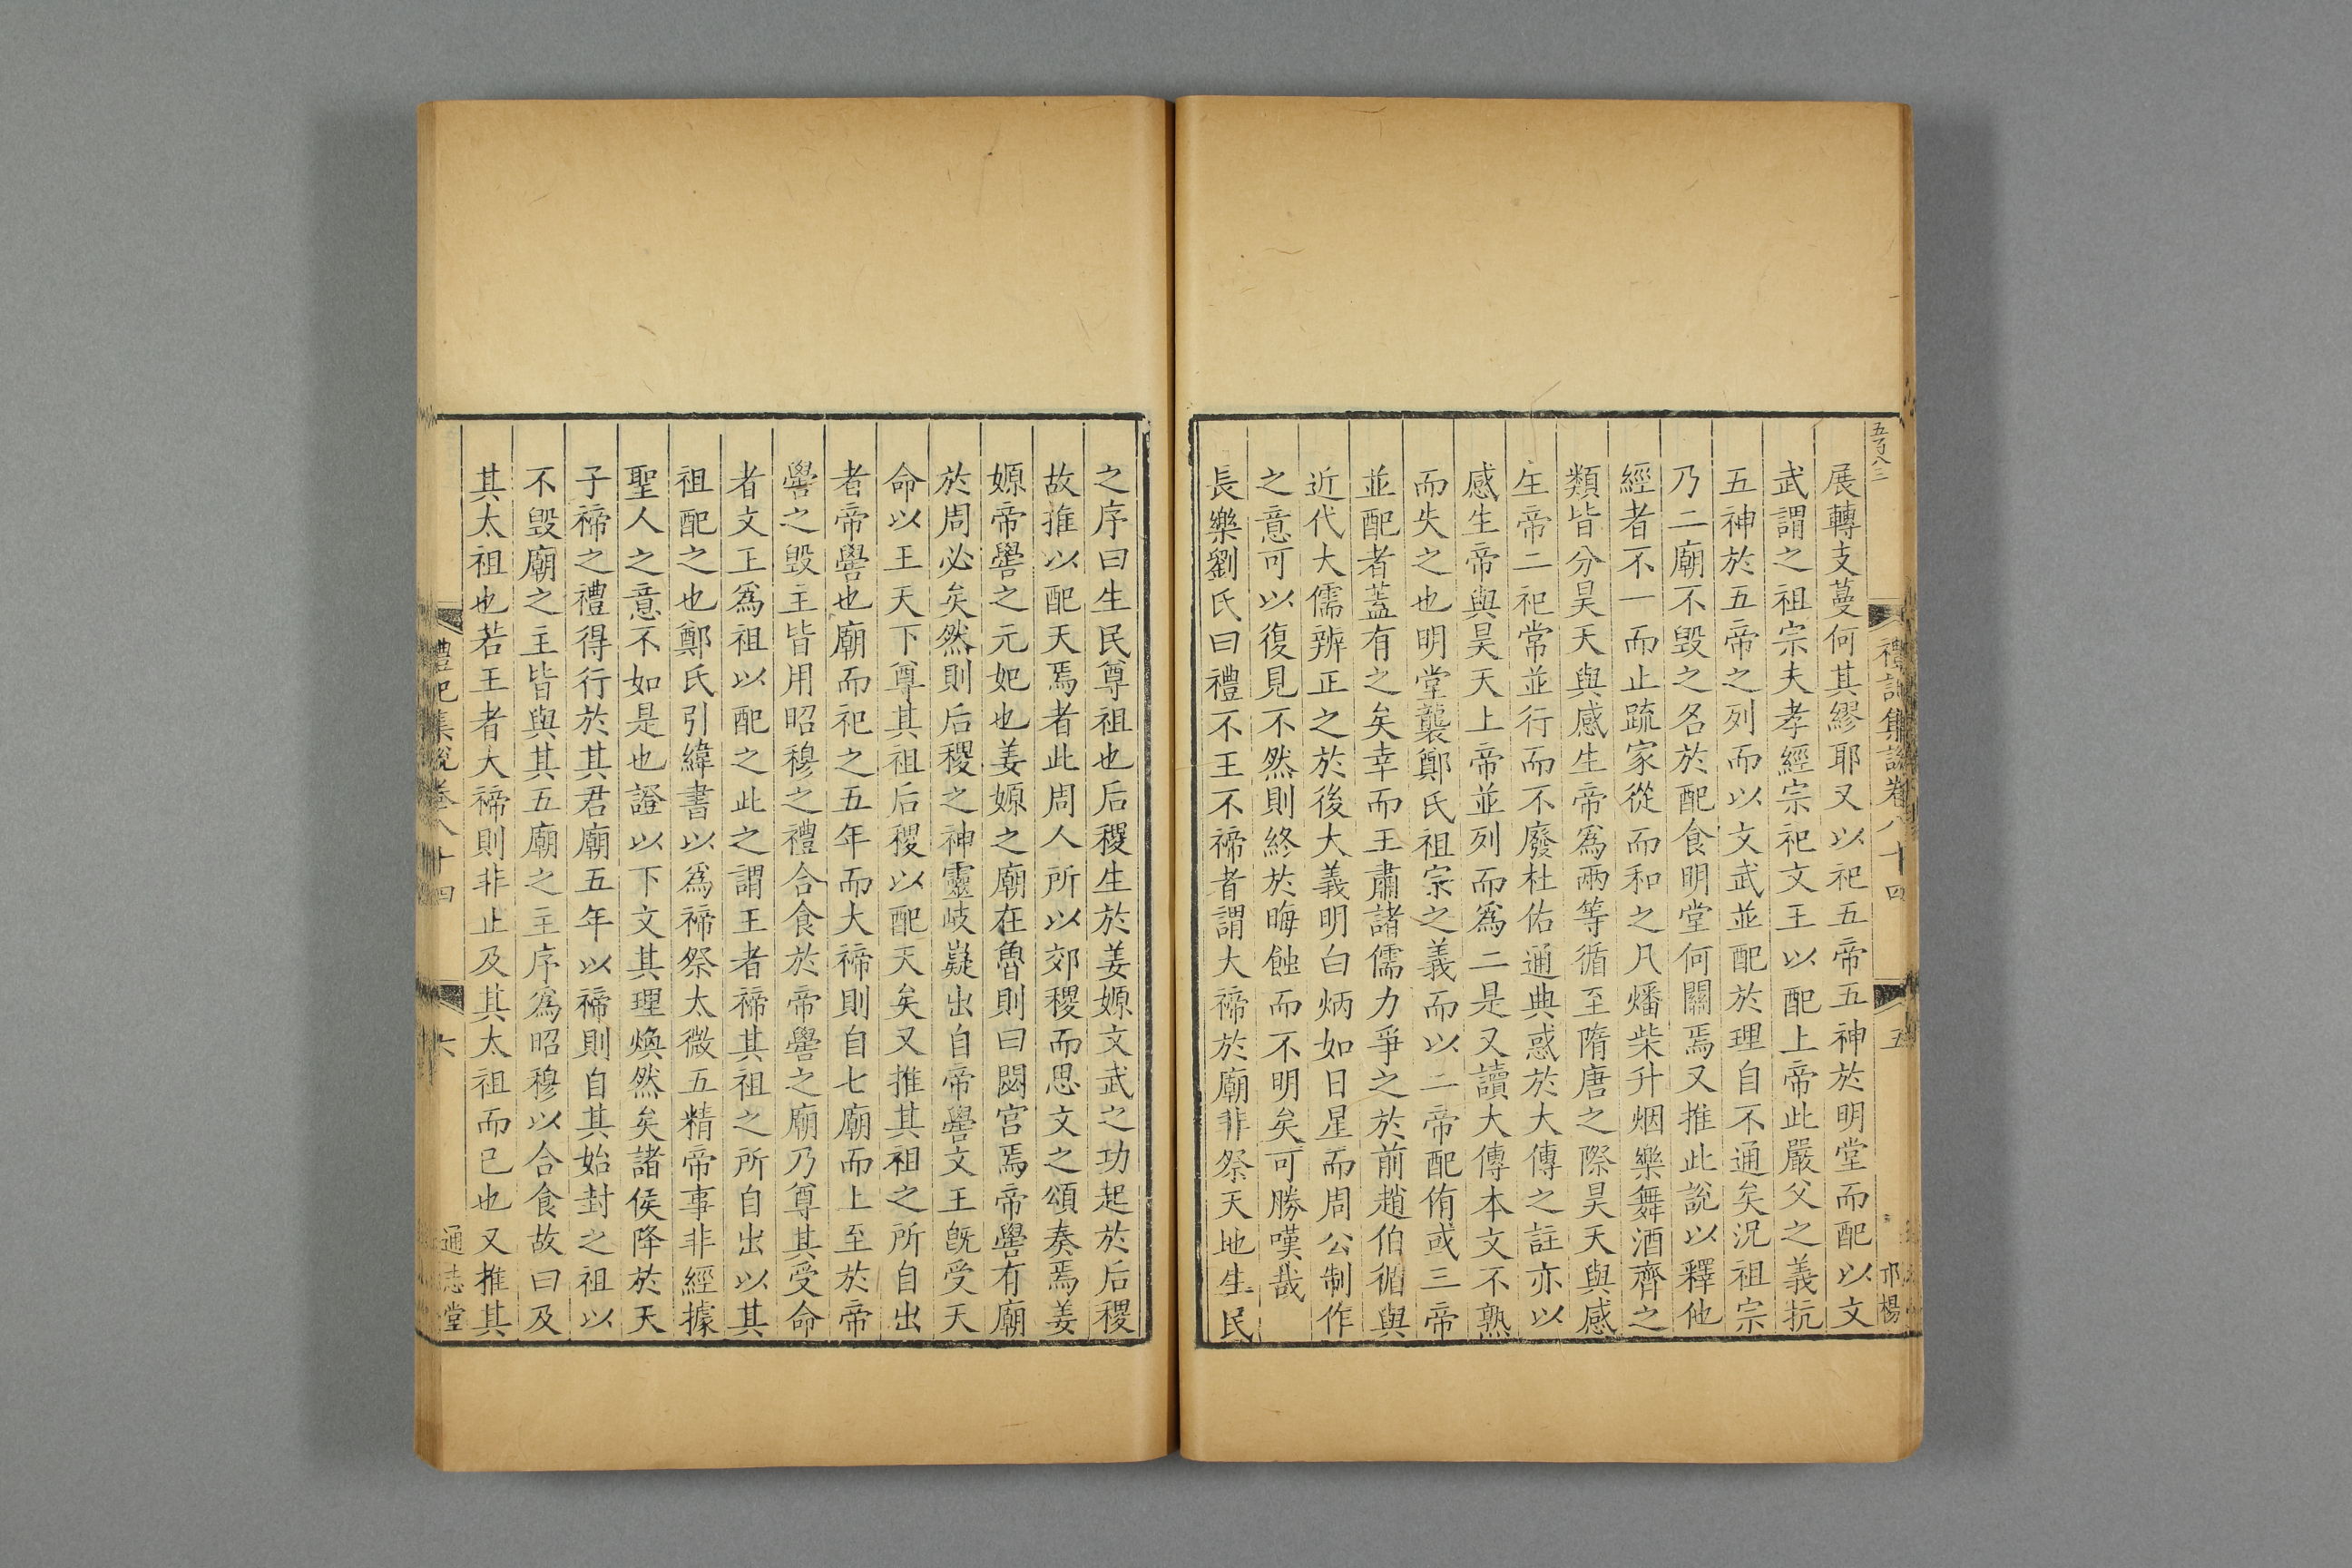 五百八三
禮記集說卷八十四
五
邝楊
展轉支蔓何其繆耶又以祀五帝五神於明堂而配以文
武謂之祖宗夫孝經宗祀文王以配上帝此嚴父之義抗
五神於五帝之列而以文武並配於理自不通矣況祖宗
乃二廟不毀之名於配食明堂何關焉又推此說以釋他
經者不一而止䟽家從而和之凡燔柴升烟樂舞酒齊之
類皆分昊天與感生帝爲兩等循至隋唐之際昊天與感
生帝二祀常並行而不廢杜佑通典惑於大傳之註亦以
感生帝與昊天上帝並列而爲二是又讀大傳本文不熟
而失之也明堂襲鄭氏祖宗之義而以二帝配侑或三帝
並配者蓋有之矣幸而王肅諸儒力爭之於前趙伯循與
近代大儒辨正之於後大義明白炳如日星而周公制作
之意可以復見不然則終於晦蝕而不明矣可勝嘆哉
長樂劉氏曰禮不王不禘者謂大禘於廟非祭天地生民
之序曰生民尊祖也后稷生於姜嫄文武之功起於后稷
故推以配天焉者此周人所以郊稷而思文之頌奏焉姜
嫄帝嚳之元妃也姜嫄之廟在魯則曰閟宫焉帝嚳有廟
於周必矣然則后稷之神靈岐嶷出自帝嚳文王旣受天
命以王天下尊其祖后稷以配天矣又推其祖之所自出
者帝嚳也廟而祀之五年而大禘則自七廟而上至於帝
嚳之毀主皆用昭穆之禮合食於帝嚳之廟乃尊其受命
者文王爲祖以配之此之謂王者禘其祖之所自出以其
祖配之也鄭氏引緯書以爲禘祭太微五精帝事非經據
聖人之意不如是也證以下文其理煥然矣諸侯降於天
子禘之禮得行於其君廟五年以禘則自其始封之祖以
不毀廟之主皆與其五廟之主序爲昭穆以合食故曰及
其太祖也若王者大禘則非止及其太祖而已也又推其
禮記集說卷八十四
六
通志堂